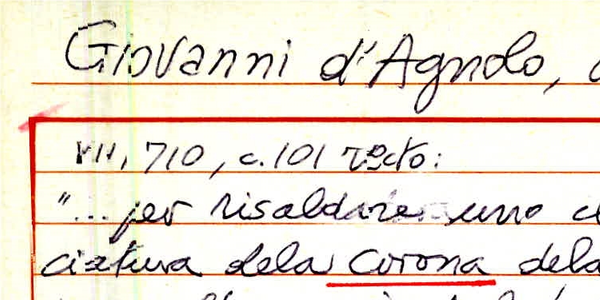 Giovanni d'Agnolo,
VII, 710, c. 101 recto:
"... per risaldare uno
ciatura dela Corona dela